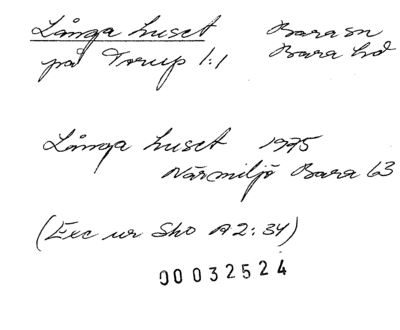 Långa huset Bara sn
på Torup 1:1 Bara hd
Långa huset 1975
Närmiljö Bara 63
(Exc ur Sko A2:34)
00032524